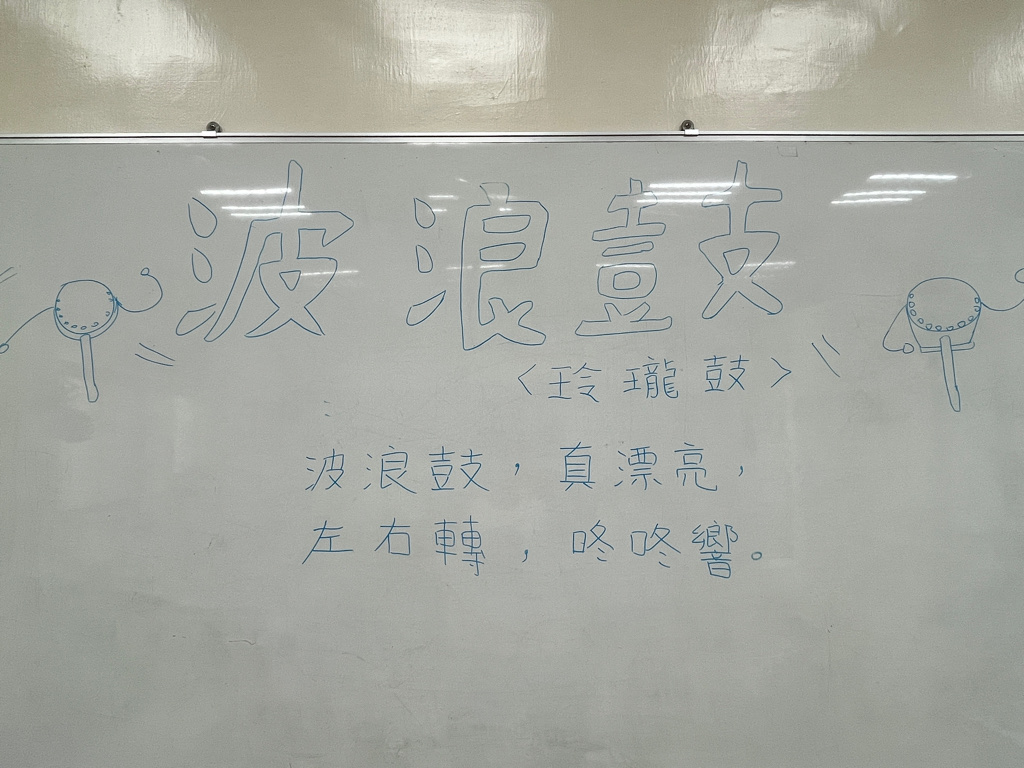 波浪鼓
<玲瓏鼓>
波浪鼓，真漂亮，
左右轉，咚咚響。